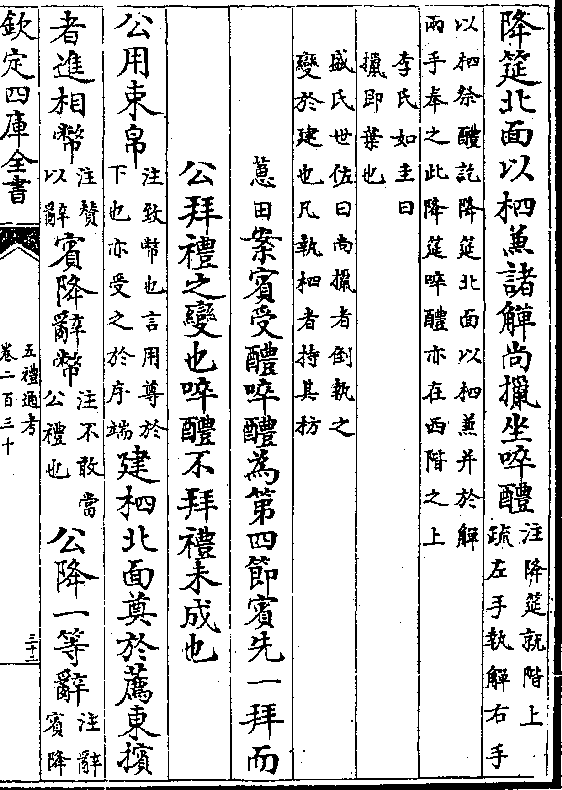 降筵北面以柶兼諸觶尚擸坐啐醴注降筵就階上疏左手執觶右手
以柶祭醴訖降筵北面以柶兼并於觶兩手奉之此降筵啐醴亦在西階之上
李氏如圭曰擸即葉也
盛氏世佐曰尚擸者倒執之變於建也凡執柶者持其枋
蕙田案賓受醴啐醴為第四節賓先一拜而
公拜禮之變也啐醴不拜禮未成也
公用束帛注致幣也言用尊於下也亦受之於序端建柶北面奠於薦東擯
者進相幣注贊以辭賓降辭幣注不敢當公禮也公降一等辭注辭賓降
欽定四庫全書
五禮通考
卷二百三十
三十三